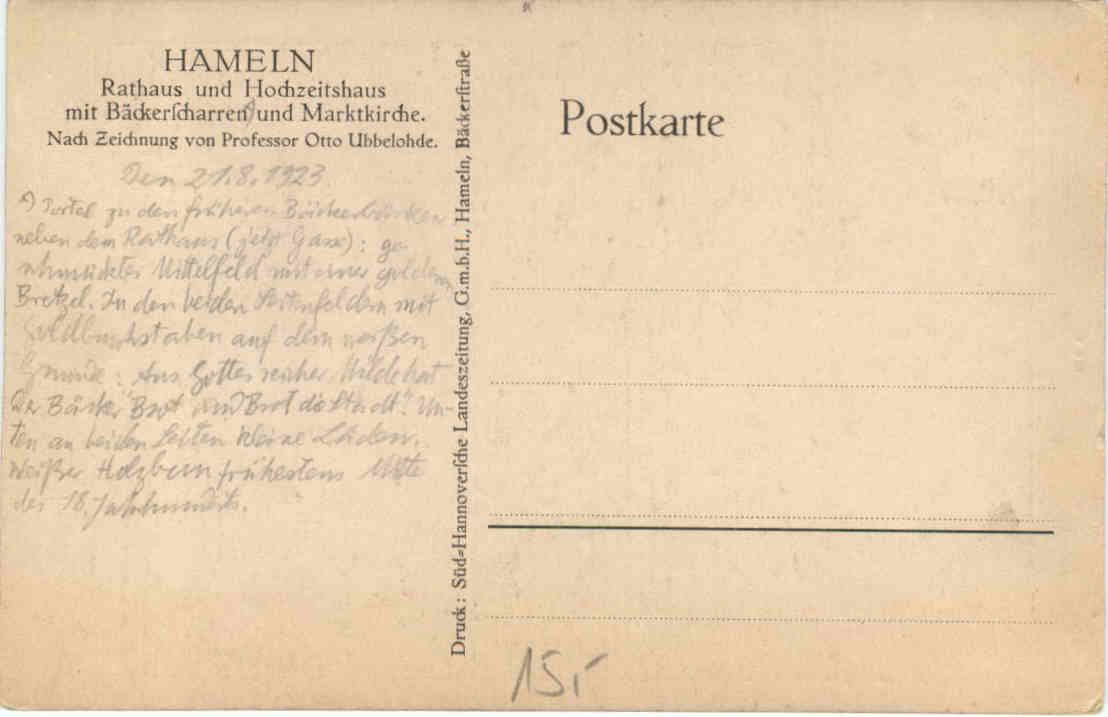 HAMELN
Rathaus und Hochzeitshaus
mit Bäckerſcharren und Marktkirche.
Nach Zeichnung von Profeſſor Otto Ubbelohde.
Den 21.8.1923
Portal zu den früheren
neben dem Rathaus (jetzt
Mittelfeld mit einer
Bretzel. In den beiden Seitenfeldern mit
Goldbuchstaben auf dem weißen
Grunde: Aus Gottes reicher Milde hat
Der Bäcker Brot und Brot die Stadt". Un-
ten an beiden Seiten kleine Läden.
weißer Holzbau frühestens Mitte
des 18. Jahrhunderts.
Druck: Süd=Hannoverſche Landeszeitung, G.m.b.H., Hameln, Bäckerſtraße
Postkarte